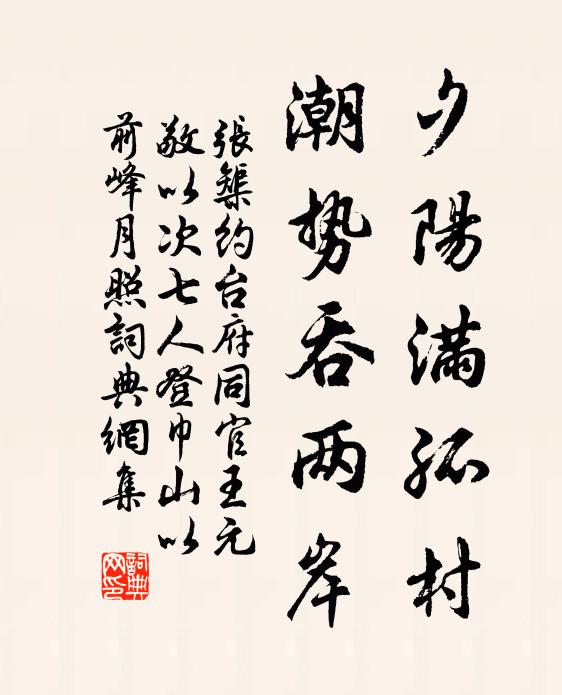 夕陽滿孤村
潮势吞两岸
張榘約台府同官王元
敬以次七人登巾山以
前峰月照詞典網集
詞典網印